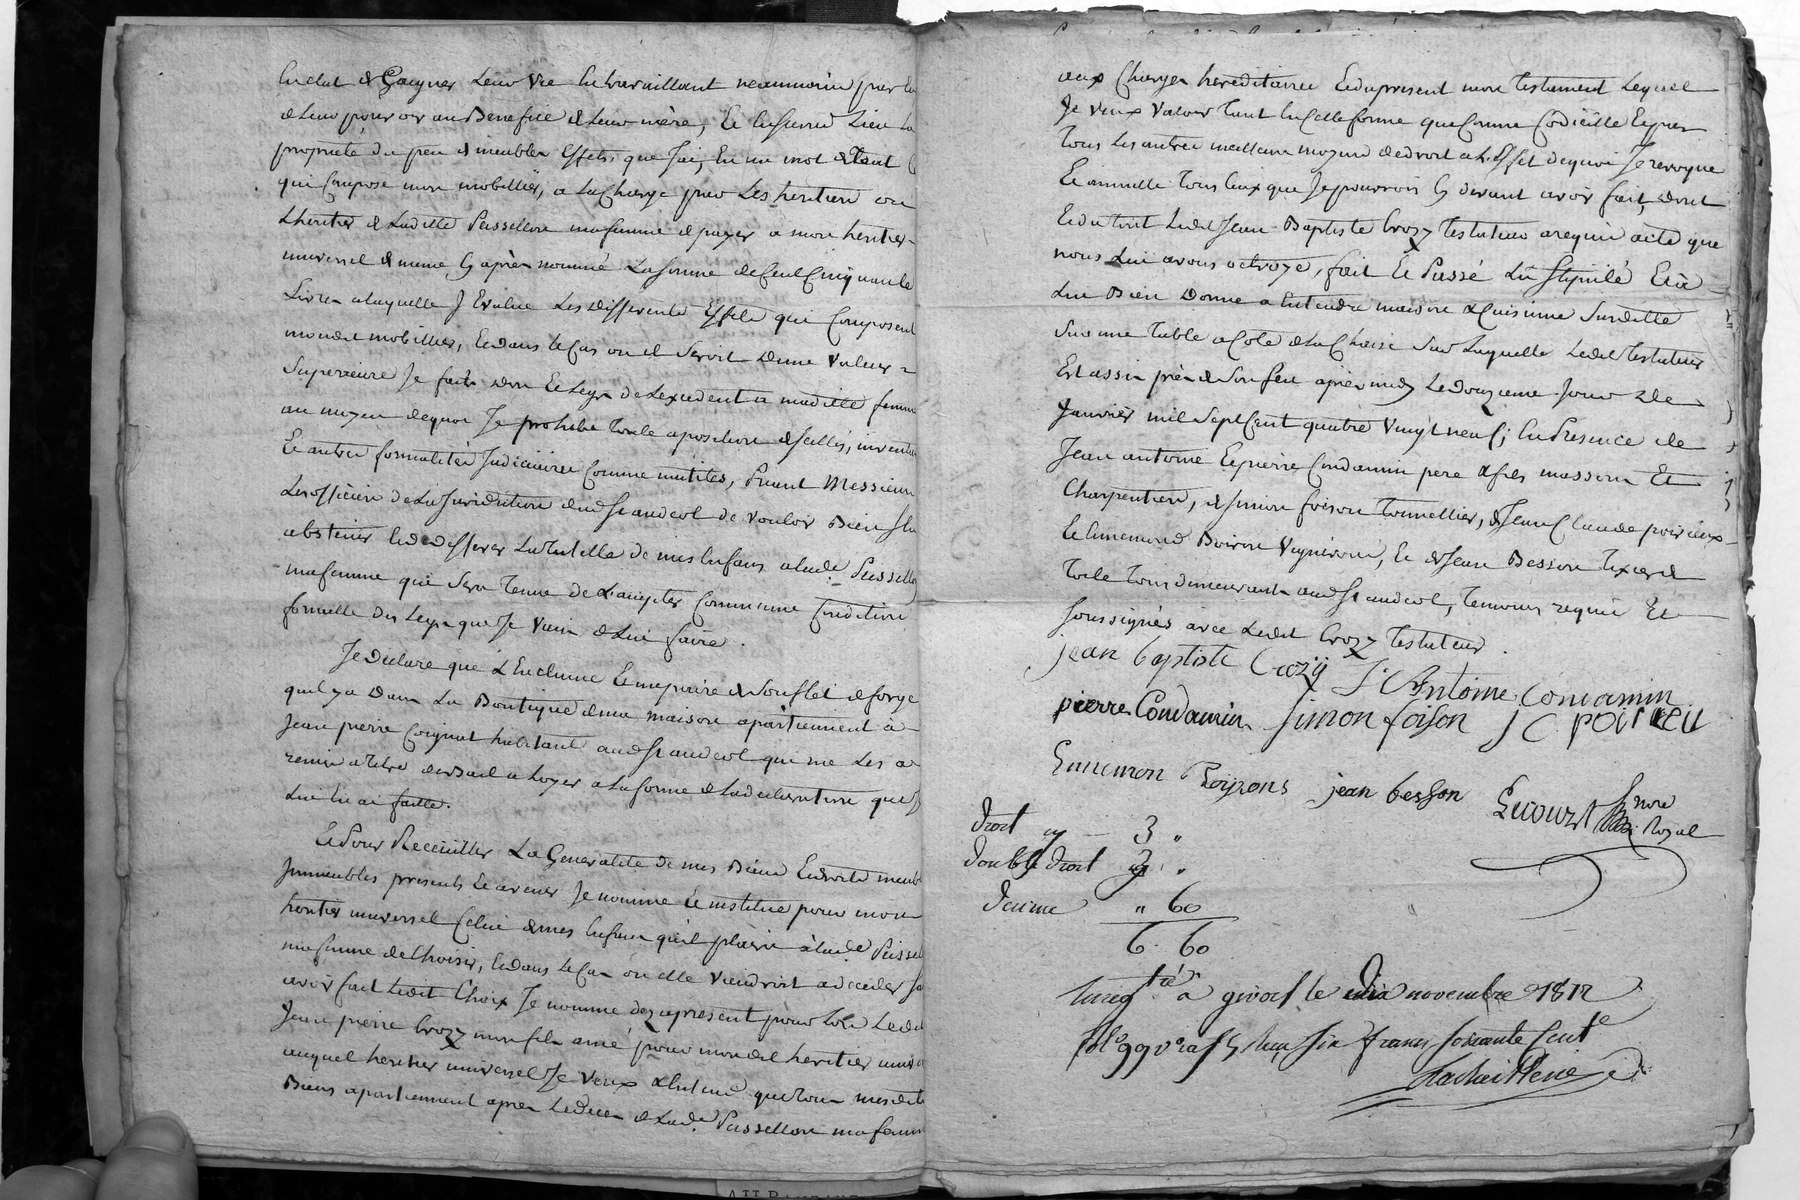 En etat de Gagner Leur Vie En travaillant neanmoins par
Leur pouvoir au Benefice de Leur mère, Et En second Lieu La
propriete du peu de meubles Effets, que J'ai, En un mot de tout
qui Compose mon mobillier, a La Charge par Les heritiers ou
Lheritier de Ladite Passellon ma femme de payer a mon heritier
universel de meme Cy après nommé La Somme de Cent Cinquante
Livres alaquelle J'Evalue Les differents Effets qui Composent
mondit mobillier, Et dans le Cas ou il Seroit d'une Valeur
Superieure Je fais don Et Legs de Lexcedent a madite femme
au moyen dequoi Je prohibe toute aposition de scellés, inventaire
Et autres formalités Judiciaires Comme inutiles, Priant Messieurs
Les officiers de La Juridiction dudt St andeol de Vouloir Bien S'en
abstenir Et de defferer La tutelle de mes Enfans a Lade Passellon
ma femme qui Sera Tenue de L'accepter Comme une Condition
formelle des Legs que Je Viens de Lui faire.
Je declare que L'Enclume Et une paire de Souflet de forge
quil y a Dans La Boutique de ma maison apartiennent à
Jean pierre Coignet habitant audt St andeol qui me Les a
remis a titre de Bail a Loyer a La forme de La declaration que Je
Lui En ai faitte.
Et Pour Receuillir La Generalité de mes Biens Et droits meubles
Immeubles presents Et avenir Je nomme Et institue pour mon
heritier universel Celui de mes Enfans qu'il plaira à Lade Passellon
ma femme de Choisir, Et dans le Cas ou elle Viendroit a deceder Sans
avoir fait Ledit Choix Je nomme des apresent pour Lors Ledit
Jean pierre Crozy mon fils ainé pour mondit heritier universel
auquel heritier universel Je Veux & Entend que tous mesdits
Biens apartiennent après Le deces de Lade Passellon ma femme
aux Charges hereditaires Et du present mon Testament Lequel
Je Veux Valoir Tant En Cette forme que Comme Codicille Et par
Tous Les autres meilleurs moyens de droit a L'Effet dequoi Je revoque
Et annulle Tous Ceux que Je pourrois Cy devant avoir fait, dont
Et du tout Ledit Jean Baptiste Crozy Testateur a requis acte que
nous Lui avons octroyé, fait Et Passé Lu Stipulé Et à
Lui Bien Donné a Entendre maison & Cuisinne Susditte
Sur une Table a Coté de La Chaise Sur Laquelle Ledit Testateur
Est assis près de Son feu après midy Le Douzieme Jour de
Janvier mil Sept Cent quatre Vingt neuf; En Presence de
Jean antoine Et pierre Condamin pere & fils massons Et
Charpentiers, de Simon foison Tonnellier, de Jean Claude poirieux
Et Ennemond Boiron Vignerons, Et de Jean Besson Tixer de
Toile Tous demeurants audt St andeol, Temoins requis Et
Soussignés avec Ledit Crozy Testateur.
jean baptiste Crozy J Antoine Condamin
pierre Condamin Simon foison J C poirieu
Ennemon Boyrons jean besson Lecourt nore Royal
Droit 3 "
Double droit 3 "
Decime " 60
6. 60
Enregtré a givors le dix novembre 1812
fol° 99 v° Cas 5 Reçu Six francs Soixante Cente